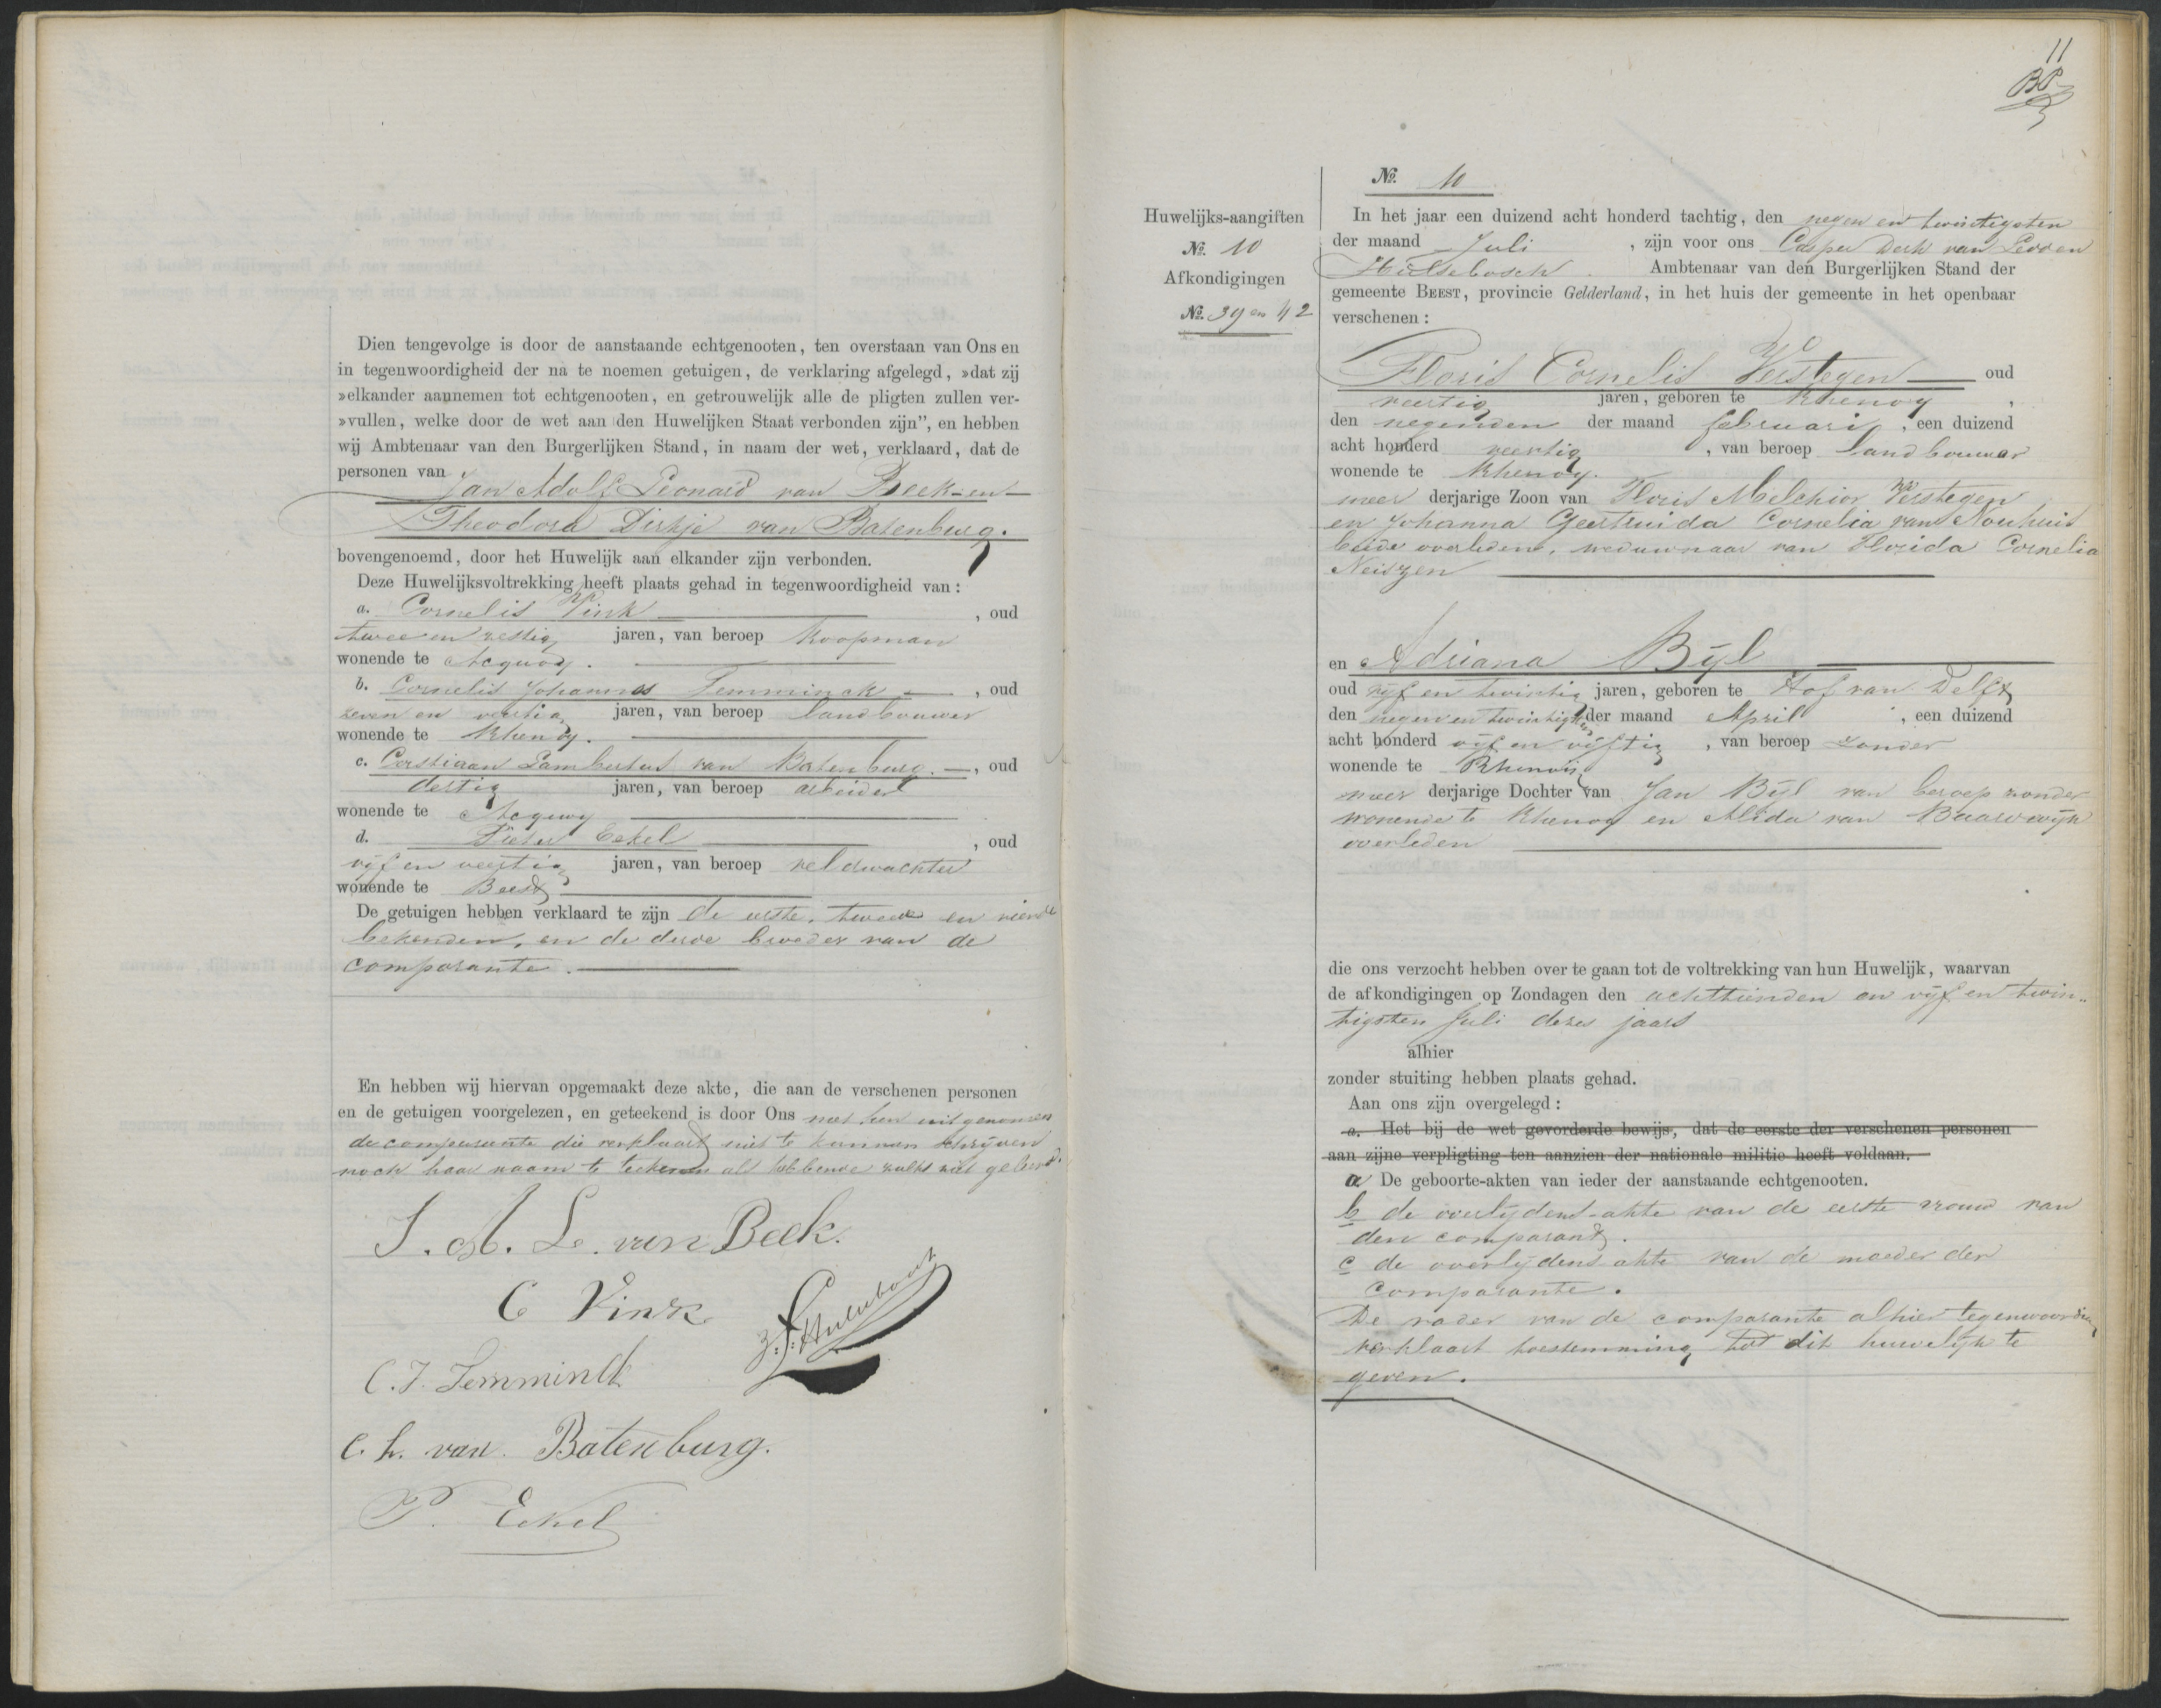 Dien tengevolge is door de aanstaande echtgenooten, ten overstaan van Ons en
in tegenwoordigheid der na te noemen getuigen, de verklaring afgelegd, »dat zij
»elkander aannemen tot echtgenooten, en getrouwelijk alle de pligten zullen ver-
»vullen, welke door de wet aan den Huwelijken Staat verbonden zijn", en hebben
wij Ambtenaar van den Burgerlijken Stand, in naam der wet, verklaard, dat de
personen van
Jan Adolf Leonard van Beek en
Theodora Dirkje van Batenburg.
bovengenoemd, door het Huwelijk aan elkander zijn verbonden.
Deze Huwelijksvoltrekking heeft plaats gehad in tegenwoordigheid van:
a. Cornelis Vink, oud
twee en zestig jaren, van beroep Koopman
wonende te Acquoy.
b. Cornelis Johannes Temminck, oud
zeven en veertig jaren, van beroep landbouwer
wonende te Rhenoy.
c. Corstiaan Lambertus van Batenburg., oud
dertig jaren, van beroep arbeider
wonende te Acquoy
d. Pieter Eekel, oud
vijf en veertig jaren, van beroep veldwachter
wonende te Beest
De getuigen hebben verklaard te zijn de eerste, tweede en vierde
bekenden, en de derde broeder van de
comparante.
En hebben wij hiervan opgemaakt deze akte, die aan de verschenen personen
en de getuigen voorgelezen, en geteekend is door Ons met hen uitgenomen
de comparante die verklaart niet te kunnen schrijven
noch haar naam te teekenen als hebbende zulks niet geleerd.
J. A. L. van Beek.
C Vink
C. J. Temminck
C. L. van Batenburg.
P. Eekel
11
No. 10
Huwelijks-aangiften
No. 10
Afkondigingen
No. 39 en 42
In het jaar een duizend acht honderd tachtig, den negen en twintigsten
der maand Juli, zijn voor ons Casper Derk van Ledden
Hulsebosch. Ambtenaar van den Burgerlijken Stand der
gemeente BEEST, provincie Gelderland, in het huis der gemeente in het openbaar
verschenen:
Floris Cornelis Verstegen oud
veertig jaren, geboren te Rhenoy,
den negenden der maand februari, een duizend
acht honderd veertig, van beroep landbouwer
wonende te Rhenoy.
meer derjarige Zoon van Floris Melchior Verstegen
en Johanna Geertruida Cornelia van Nouhuis
beide overleden, weduwnaar van Florida Cornelia
Neiszen
en Adriana Bijl
oud vijf en twintig jaren, geboren te Hof van Delft
den negen en twintigsten der maand April, een duizend
acht honderd vijf en vijftig, van beroep zonder
wonende te Rhenoij
meer derjarige Dochter van Jan Bijl van beroep zonder
wonende te Rhenoy en Alida van Baardwijk
overleden
die ons verzocht hebben over te gaan tot de voltrekking van hun Huwelijk, waarvan
de afkondigingen op Zondagen den achttienden en vijf en twin„
tigsten Juli dezes jaars
alhier
zonder stuiting hebben plaats gehad.
Aan ons zijn overgelegd:
a. Het bij de wet gevorderde bewijs, dat de eerste der verschenen personen
aan zijne verpligting ten aanzien der nationale militie heeft voldaan.
a De geboorte-akten van ieder der aanstaande echtgenooten.
b de overlydens-akte van de eerste vrouw van
den comparant.
c de overlydens akte van de moeder der
Comparante.
De vader van de comparante alhier tegenwoordig
verklaart toestemming tot dit huwelijk te
geven.